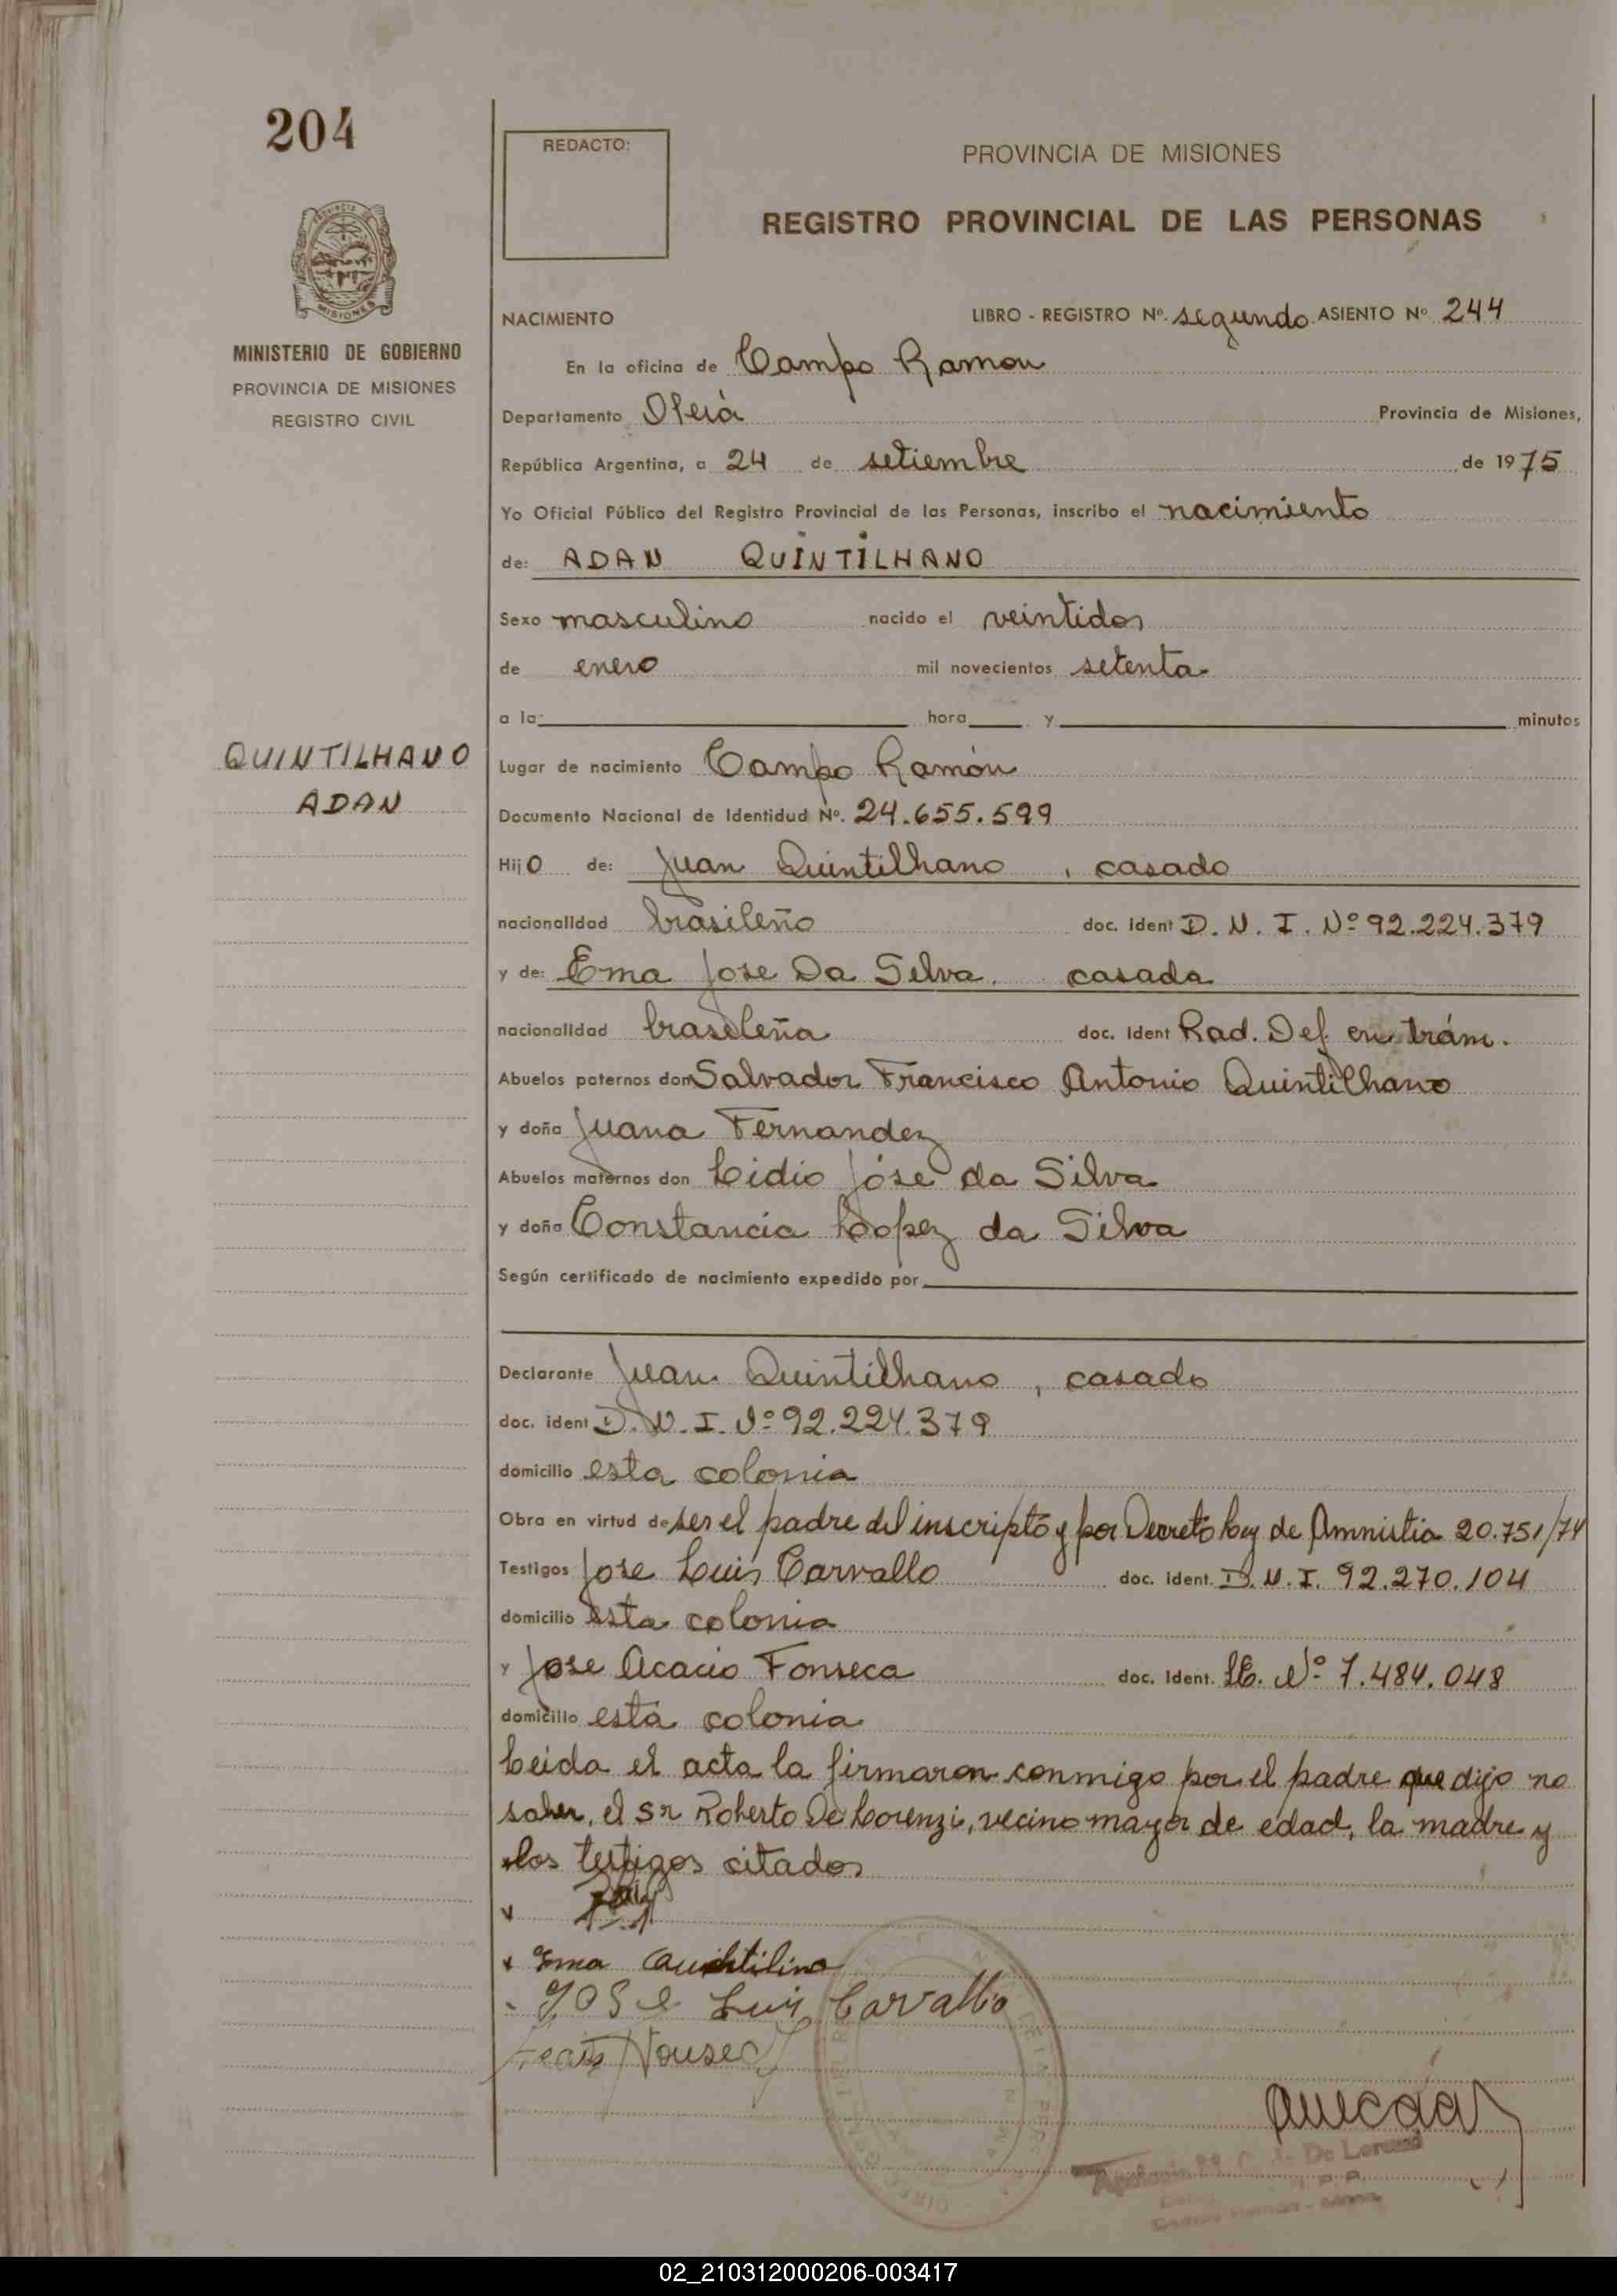 204
REDACTO:
PROVINCIA DE MISIONES
REGISTRO PROVINCIAL DE LAS PERSONAS
MISIONES
MINISTERIO DE GOBIERNO
PROVINCIA DE MISIONES
REGISTRO CIVIL
NACIMIENTO LIBRO - REGISTRO Nº. segundo ASIENTO Nº 244
En la oficina de Campo Ramon
Departamento Oberá Provincia de Misiones,
República Argentina, a 24 de setiembre de 1975
Yo Oficial Público del Registro Provincial de las Personas, inscribo el nacimiento
de: ADAN QUINTILHANO
Sexo masculino nacido el veintidos
de enero mil novecientos setenta
a la: hora y minutos
QUINTILHANO
ADAN
Lugar de nacimiento Campo Ramón
Documento Nacional de Identidad Nº. 24.655.599
Hijo de: Juan Quintilhano, casado
nacionalidad brasileño doc. ident D.N.I. Nº 92.224.379
y de: Ema Jose Da Silva. casada
nacionalidad brasileña doc. ident Rad. Def. en trám.
Abuelos paternos don Salvador Francisco Antonio Quintilhano
y doña Juana Fernandez
Abuelos maternos don Lidio Jóse da Silva
y doña Constancia Lopez da Silva
Según certificado de nacimiento expedido por
Declarante Juan Quintilhano, casado
doc. ident D.N.I. Nº 92.224.379
domicilio esta colonia
Obra en virtud de ser el padre del inscripto y por Decreto Ley de Amnistia 20.751/74
Testigos Jose Luis Carvallo doc. ident. D.N.I. 92.270.104
domicilio esta colonia
y Jose Acacio Fonseca doc. ident. LE. Nº 7.484.048
domicilio esta colonia
Leida el acta la firmaron conmigo por el padre que dijo no
saber, el Sr Roberto De Lorenzi, vecino mayor de edad, la madre y
los testigos citados
Ema
José Luis Carvallio
De Lorenzi
02_210312000206-003417